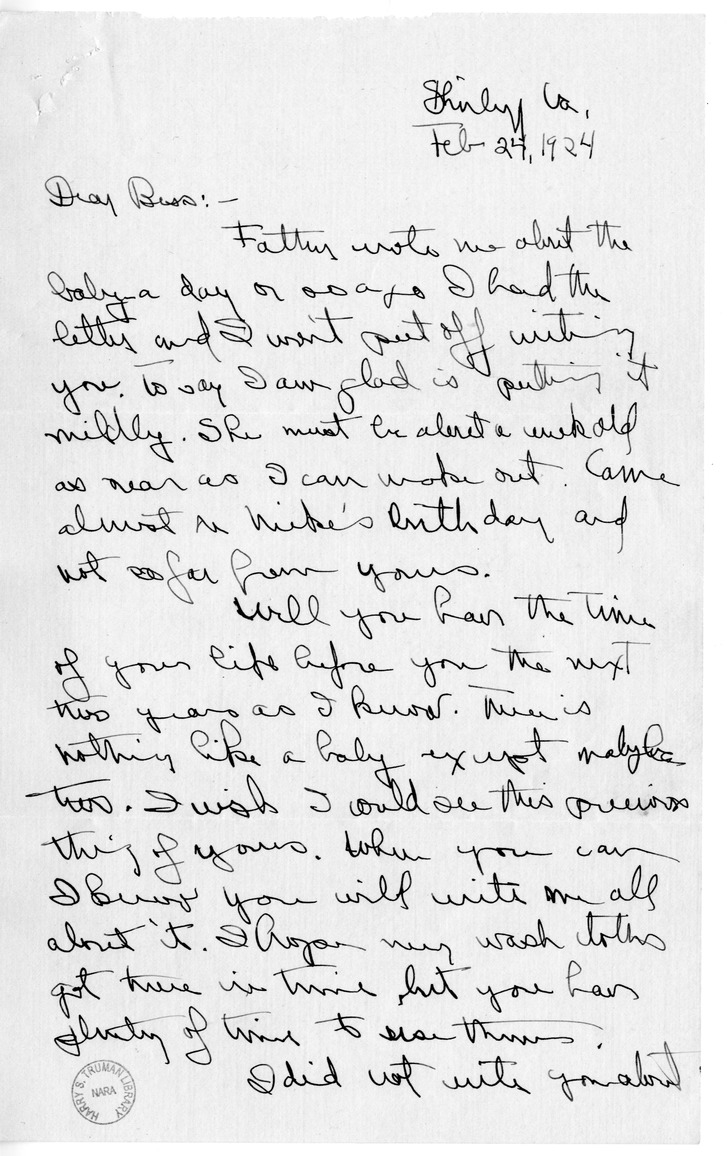 Shirley Va,
Feb 24, 1924
Dear Bess:-
Father wrote me about the
baby a day or so ago I had the
letter and I won't put off writing
you. To say I am glad is putting it
mildly. She must be about a week old
as near as I can make out. Came
almost on Mike's birthday and
not so far from yours.
Well you have the time
of your life before you the next
two years as I know. There is
nothing like a baby except maybe
two. I wish I could see this precious
thing of yours. When you can
I know you will write me all
about it. I hope my wash cloths
got there in time, but you have
plenty of time to use them.
I did not write you about
HARRY S. TRUMAN LIBRARY
NARA